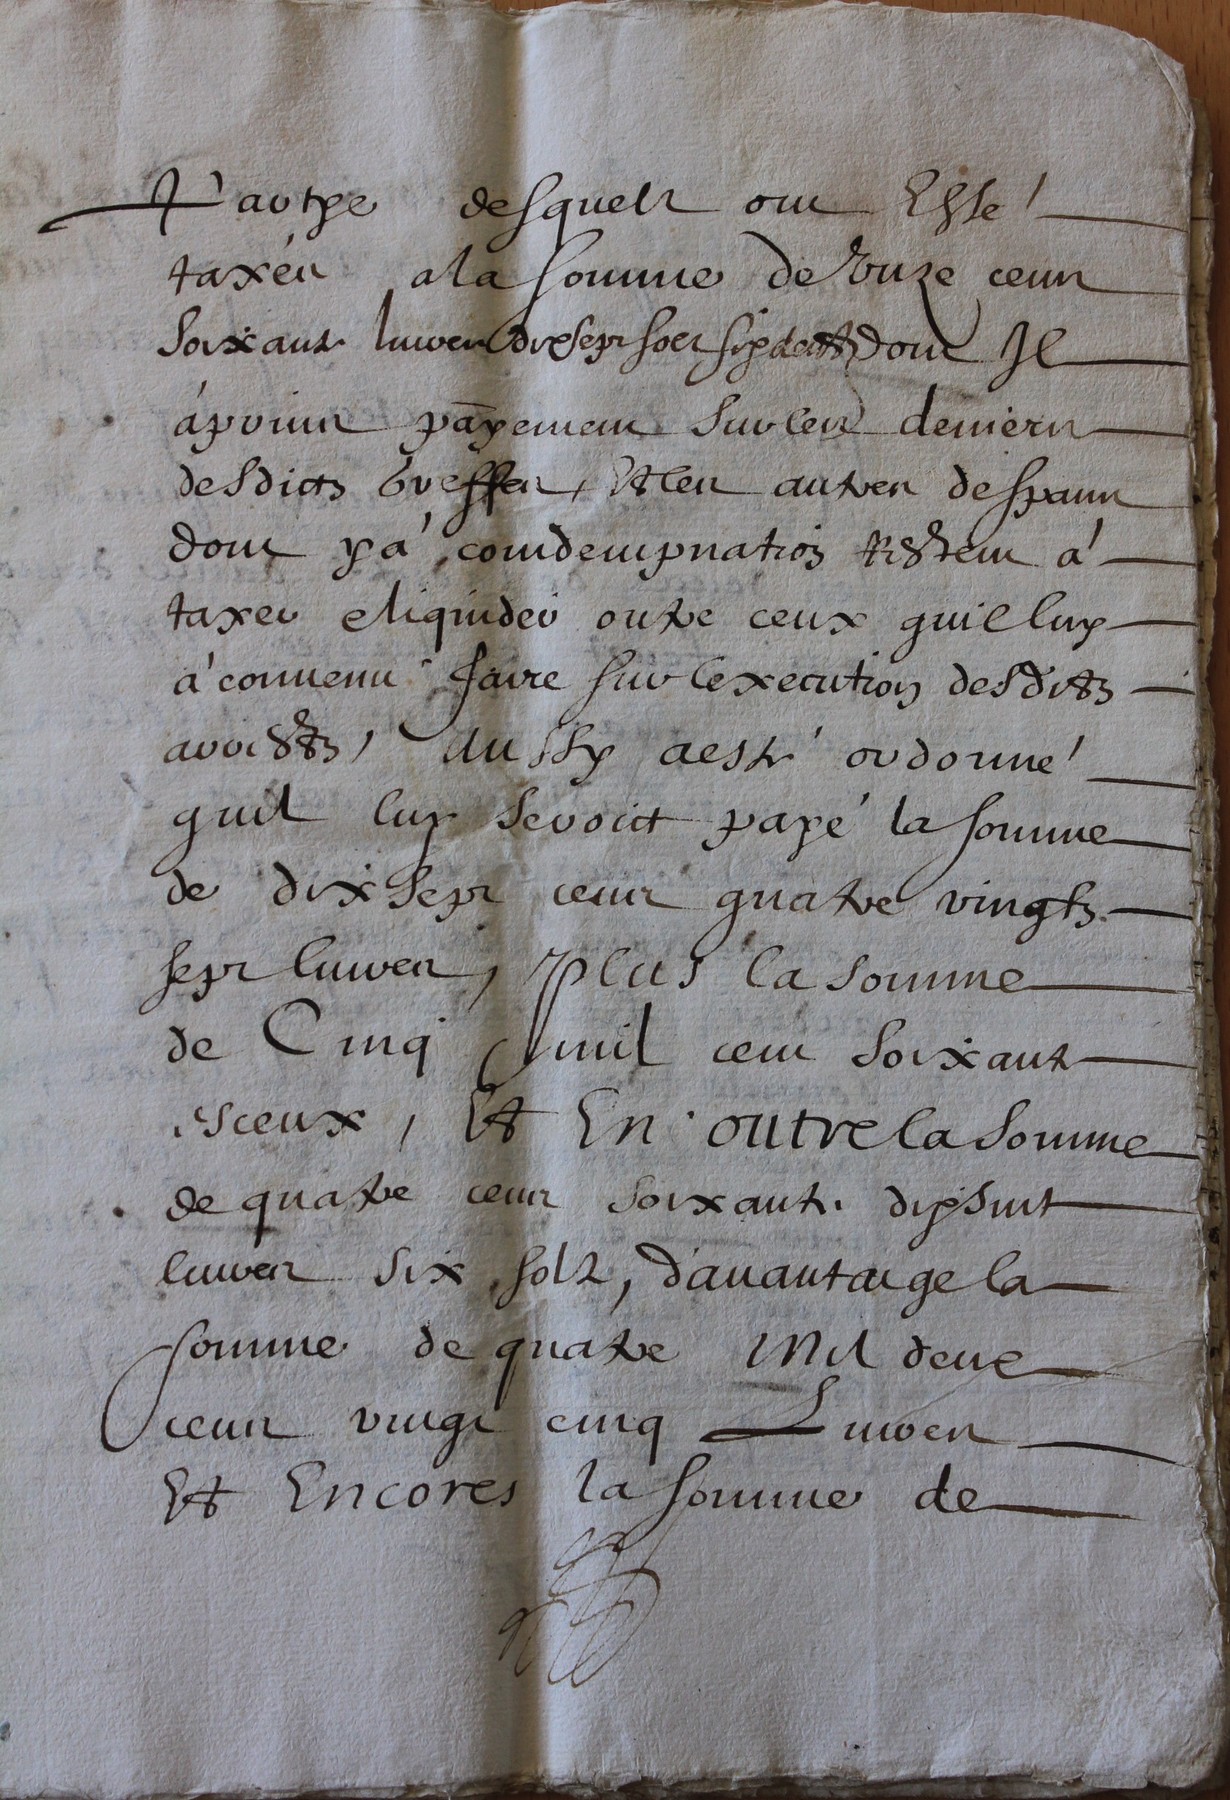 partye desquelz ont Esté
taxés a la somme de Unze cens
soixante livres dix sept solz six deners dont Il
á prins payement sur les deniers
desdicts Greffes, Et les autres despans
dont y á condempnation Restent á
taxer e liquider outre ceux quil luy
á convenu faire sur lexecution desdits
arrestz, Aussy a esté ordonné
quil luy seroict payé la somme
de dix sept cens quatre vingts
sept livres, Plus la somme
de Cinq mil cent soixante
esceux, Et En outre la somme
de quatre cens soixante dixhuit
livres six solz, d'avantaige la
somme de quatre Mil deux
cens vingt cinq Livres
Et Encores la somme de